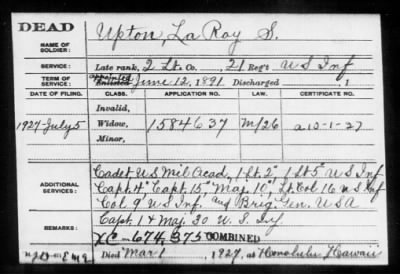 DEAD
NAME OF SOLDIER: Upton, La Roy S.
SERVICE: Late rank, 2 Lt. Co. , 21 Reg't U S Inf
TERM OF SERVICE: appointed Enlisted June 12, 1891 Discharged , 1
DATE OF FILING. CLASS. APPLICATION NO. LAW. CERTIFICATE NO.
Invalid,
1927-July 5 Widow, 1584637 M/26 a-10-1-27
Minor,
ADDITIONAL SERVICES: Cadet, U S Mil Acad, 1 Lt. 2" 1 Lt 5" U S Inf
Capt. 4" Capt. 15" Maj. 10" Lt Col 16 U S Inf
Col 9" U S Inf. and Brig. Gen. U S A
REMARKS: Capt. 1 & Maj. 30 U. S. Inf
XC-674,375 COMBINED
Died Mar 1 , 1927, at Honolulu Hawaii